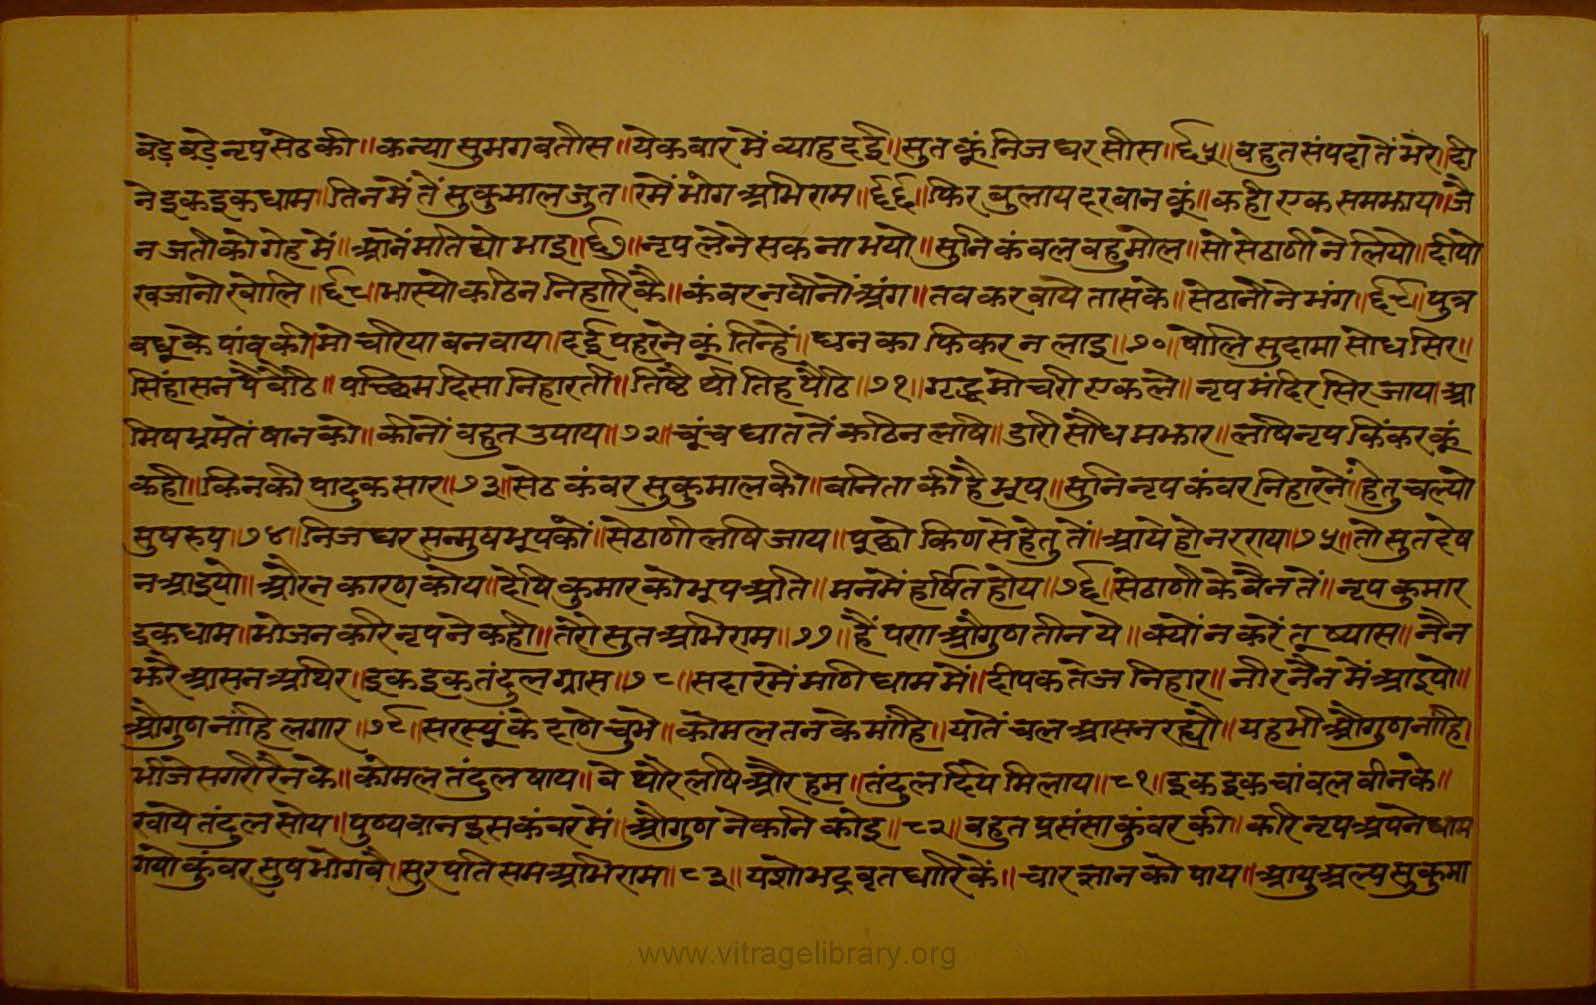 बडे बडे नृप सेठ की॥ कन्या सुभग बतीस॥ येक बार में व्याह दई॥ सुत कूं निज घर सीस॥६५॥ बहुत संपदा तें भरे॥ दी
ने इक इक धाम॥ तिन में तें सुकुमाल जुत॥ रमें भोग अभिराम॥६६॥ फिर बुलाय दरवान कूं॥ कही एक समझाय॥ जै
न जती को गेह में॥ आनें मति द्यो भाइ॥६७॥ नृप लेने सक ना भयो॥ सुनि कंबल बहु मोल॥ सो सेठाणी ने लियो॥ दीयो
खजानो खोलि॥६८॥ भास्यो कठिन निहारि कै॥ कंवर नवीनों अंग॥ तव करवाये तास के॥ सेठानी ने भंग॥६९॥ पुत्र
बधू के पांव की॥ मोचरिया बनवाय॥ दई पहरने कूं तिन्हें॥ धन का फिकर न लाइ॥७०॥ षोलि सुदामा सोध सिर॥
सिंहासन पै बैठि॥ पच्छिम दिसा निहारती॥ तिष्टै थी तिह पैठि॥७१॥ गृद्ध मोचरी एक ले॥ नृप मंदिर सिर जाय॥ आ
मिष भ्रम तें षान को॥ कीनों बहुत उपाय॥७२॥ चूंच घात तें कठिन लषि॥ डारी सौध मझार॥ लषि नृप किंकर कूं
कही॥ किन की पादुक सार॥७३॥ सेठ कंवर सुकुमाल की॥ बनिता की है भूप॥ सुनि नृप कंवर निहारनें॥ हेतु चल्यो
सुष रूप॥७४॥ निज घर सन्मुष भूप कों॥ सेठाणी लषि जाय॥ पूछो किण से हेतु तें॥ आये हो नर राय॥७५॥ तो सुत देष
न आइयो॥ और न कारण कोय॥ देषि कुमार को भूप अति॥ मन में हर्षित होय॥७६॥ सेठाणी के बैन तें॥ नृप कुमार
इक धाम॥ भोजन करि नृप ने कही॥ तेरो सुत अभिराम॥७७॥ हैं परा औगुण तीन ये॥ क्यों न करें तू ष्यास॥ नैन
झरै आसन अथिर॥ इक इक तंदुल ग्रास॥७८॥ सदा रमें मणि धाम में॥ दीपक तेज निहार॥ नीर नैन में आइयो॥
औगुण नांहि लगार॥७९॥ सरस्यूं के दाणे चुभे॥ कोमल तन के मांहि॥ यातें चल आसन रह्यौ॥ यह भी औगुण नांहि॥
भीजे सगरी रैन के॥ कोमल तंदुल षाय॥ वे थोर लषि और हम॥ तंदुल दिये मिलाय॥८१॥ इक इक चांवल वीन के॥
खाये तंदुल सोय॥ पुण्यवान इस कंवर में॥ औगुण नेक न कोइ॥८२॥ बहुत प्रसंसा कुंवर की॥ करि नृप अपने धाम
गयो कुंवर सुष भोगवै॥ सुरपति सम अभिराम॥८३॥ यशोभद्र वृत धारि कें॥ चार ज्ञान को पाय॥ आयु अल्प सुकुमा
www.vitragelibrary.org